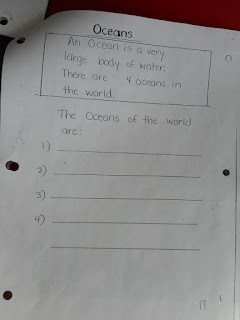 Oceans
An Ocean is a very
large body of water.
There are 4 oceans in
the world.
The Oceans of the world
are:
1)
2)
3)
4)